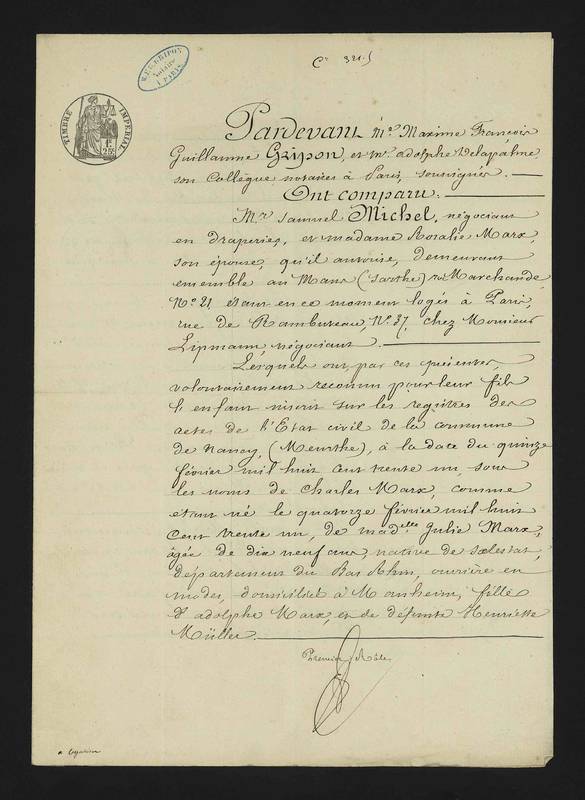 Cn 321.5
Me F. GRIPON
Notaire
A PARIS
TIMBRE IMPERIAL
Pardevant Me Maxime François
Guillaume Gripon, et Me adolphe Delapalme,
son Collègue notaires à Paris, soussignés.
Ont comparu.
Mr Samuel Michel, négociant
en draperies, et madame Rosalie Marx,
son épouse, qu'il autorise, demeurant
ensemble au Mans (Sarthe) rue Marchande
No 21 étant en ce moment logés à Paris,
rue de Rambuteau, No 37, chez Monsieur
Lipmann, négociant
Lesquels ont par ces présentes,
volontairement reconnu pour leur fils
l'enfant inscrit sur les registres des
actes de l'Etat civil de la commune
de Nancy, (Meurthe), à la date du quinze
février mil huit cent trente un, sous
les noms de Charles Marx, comme
étant né le quatorze février mil huit
Cent trente un, de madelle Julie Marx,
âgée de dix neuf ans, native de Scelestat,
département du Bas Rhin, ouvrière en
modes, domiciliée à Manheim, fille
d'adolphe Marx, et de défunte Henriette
Müller.
Premier Rôle